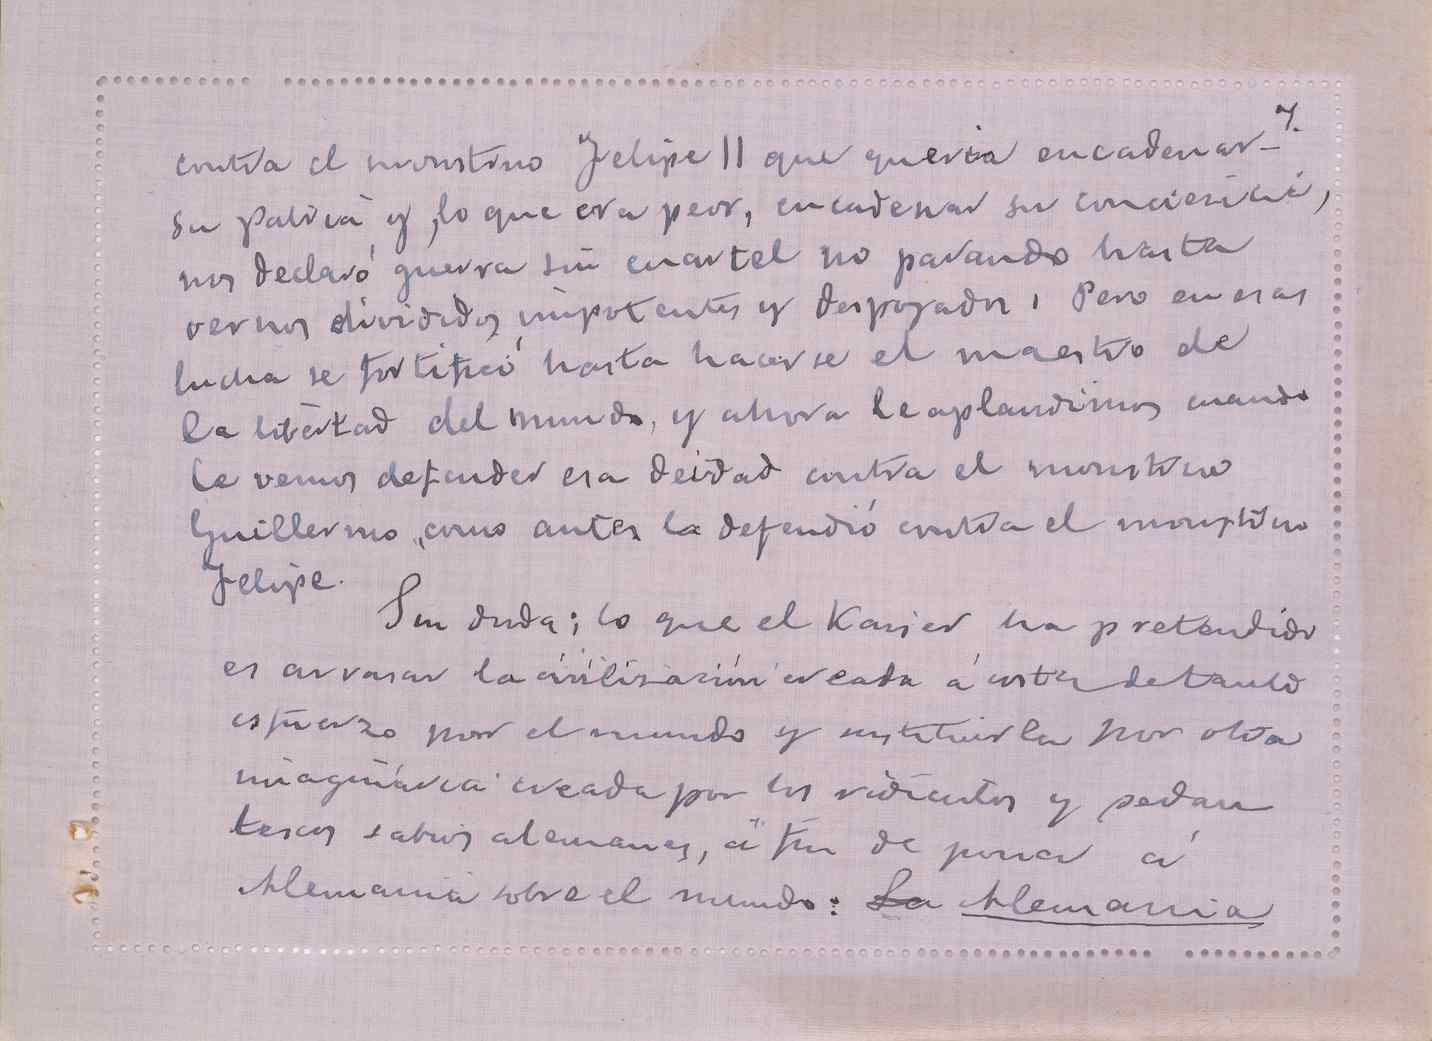 7.
contra el monstruo Felipe II que queria encadenar
su patria y, lo que era peor, encadenar su conciencia,
nos declaró guerra sin cuartel no parando hasta
vernos divididos, impotentes y despojados. Pero en esas
lucha se fortificó hasta hacerse el maestro de
la libertad del mundo, y ahora le aplaudimos cuando
le vemos defender esa deidad contra el monstruo
Guillermo, como antes la defendió contra el monstruo
Felipe.
Sin duda; lo que el Kaiser ha pretendido
es arrasar la civilización creada á costa de tanto
esfuerzo por el mundo y sustituirla por otra
imaginaria creada por los ridiculos y pedan
tescos sabios alemanes, á fin de poner á
Alemania sobre el mundo: La Alemania